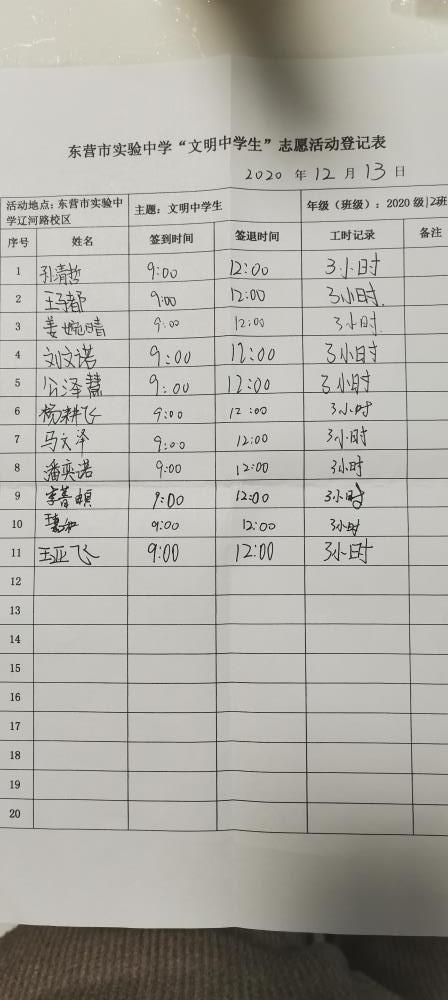 东营市实验中学“文明中学生”志愿活动登记表
2020 年 12 月 13 日
活动地点：东营市实验中学辽河路校区 主题：文明中学生 年级（班级）：2020 级12班
序号 姓名 签到时间 签退时间 工时记录 备注
1 孙清哲 9:00 12:00 3小时
2 王子都 9:00 12:00 3小时.
3 姜婉晴 9:00 12:00 3小时
4 刘文诺 9:00 12:00 3小时
5 公泽慧 9:00 12:00 3小时
6 杨耕飞 9:00 12:00 3小时
7 马文泽 9:00 12:00 3小时
8 潘奕诺 9:00 12:00 3小时
9 9:00 12:00 3小时
10 9:00 12:00 3小时
11 王亚飞 9:00 12:00 3小时
12
13
14
15
16
17
18
19
20